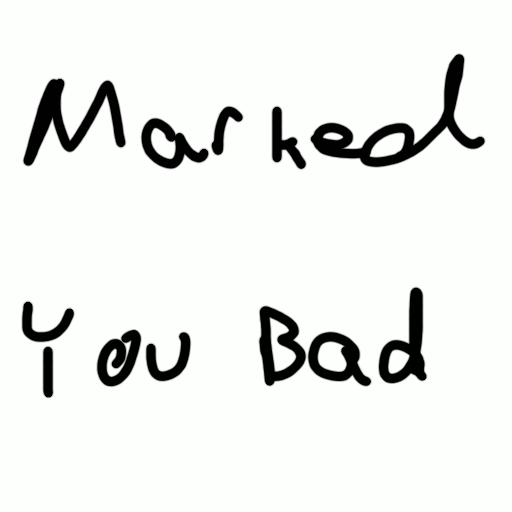 Marked
You Bad